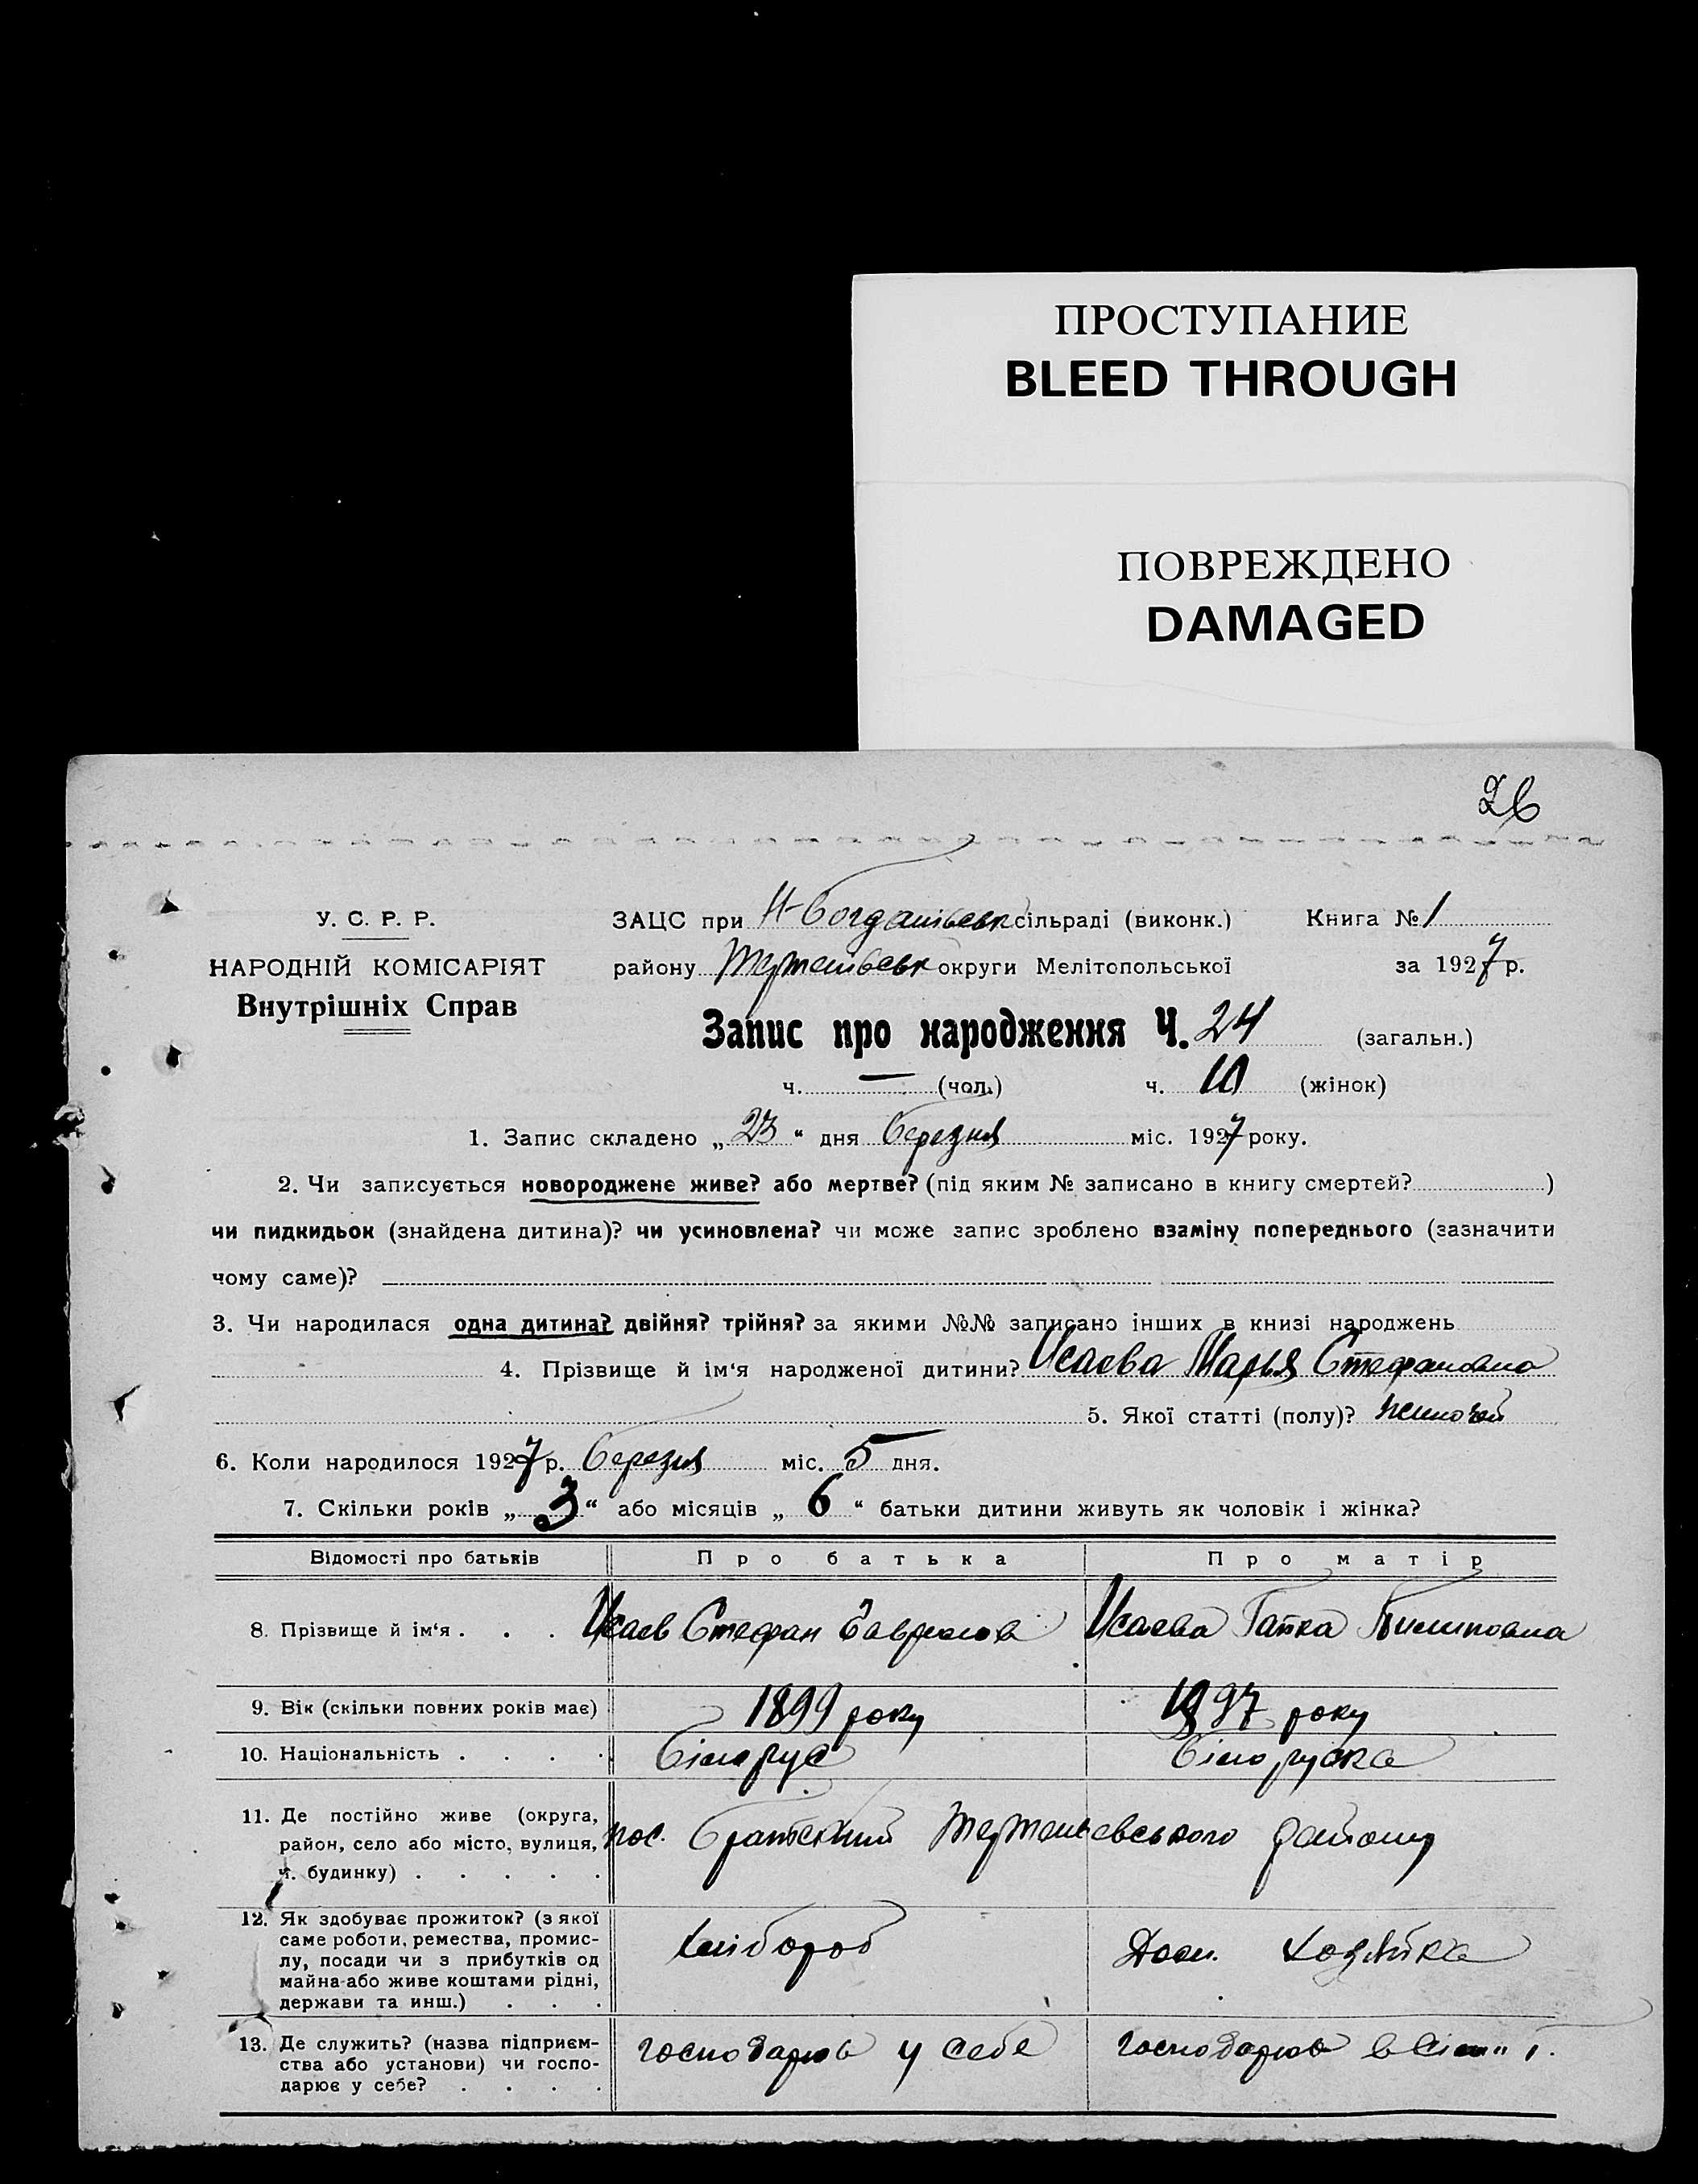 ПРОСТУПАНИЕ
BLEED THROUGH
ПОВРЕЖДЕНО
DAMAGED
26
У. С. Р. Р.
НАРОДНІЙ КОМІСАРІЯТ
Внутрішніх Справ
ЗАЦС при Н-Богданівськ сільраді (виконк.) Книга № 1
району Терпеньевськ округи Мелітопольської за 1927 р.
Запис про народження Ч. 24 (загальн.)
ч. — (чол.) ч. 10 (жінок)
1. Запис складено „ 23 “ дня березня міс. 1927 року.
2. Чи записується новороджене живе? або мертве? (під яким № записано в книгу смертей? )
чи пидкидьок (знайдена дитина)? чи усиновлена? чи може запис зроблено взаміну попереднього (зазначити
чому саме)?
3. Чи народилася одна дитина? двійня? трійня? за якими №№ записано інших в книзі народжень
4. Прізвище й ім‘я народженої дитини? Исаева Марья Стефановна
5. Якої статті (полу)?
6. Коли народилося 1927 р. березня міс. 5 дня.
7. Скільки років „ 3 “ або місяців „ 6 “ батьки дитини живуть як чоловік і жінка?
Відомості про батьків Про батька Про матір
8. Прізвище й ім‘я . . . Исаев Стефан Исаева Гапка Пилиповна
9. Вік (скільки повних років має) 1899 року 1897 року
10. Національність . . . . білорус білоруска
11. Де постійно живе (округа,
район, село або місто, вулиця, пос. Братский Терпеньевського району
ч. будинку) . . . . .
12. Як здобуває прожиток? (з якої
саме роботи, ремества, промис-
лу, посади чи з прибутків од хлібороб Дом. хозяйка
майна-або живе коштами рідні,
держави та инш.) . . .
13. Де служить? (назва підприєм-
ства або установи) чи госпо- господарює у себе господарює в
дарює у себе? . . . .